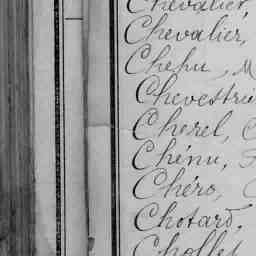 Chevalier,
Chevalier,
Chehu, M
Chevestrie
Chezel, C
Chénu,
Chéro,
Chotard,
Chollet